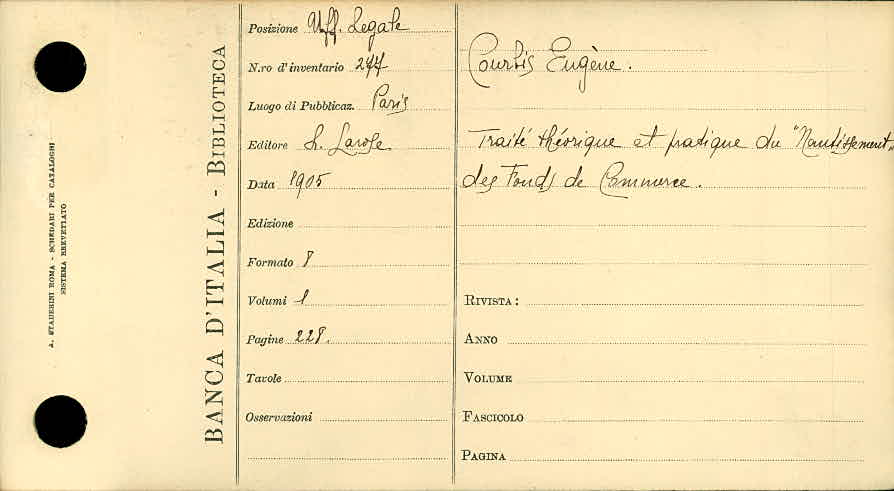 A. STADERINI ROMA - SCHEDARI PER CATALOGHI
SISTEMA BREVETTATO
BANCA D'ITALIA - BIBLIOTECA
Posizione Uff. Legale
N.ro d'inventario 277
Luogo di Pubblicaz. Paris
Editore L. Larose
Data 1905
Edizione
Formato 8
Volumi 1
Pagine 228.
Tavole
Osservazioni
Courbis Eugène.
Traité théorique et pratique du "Nantissement"
des Fonds de Commerce.
RIVISTA:
ANNO
VOLUME
FASCICOLO
PAGINA